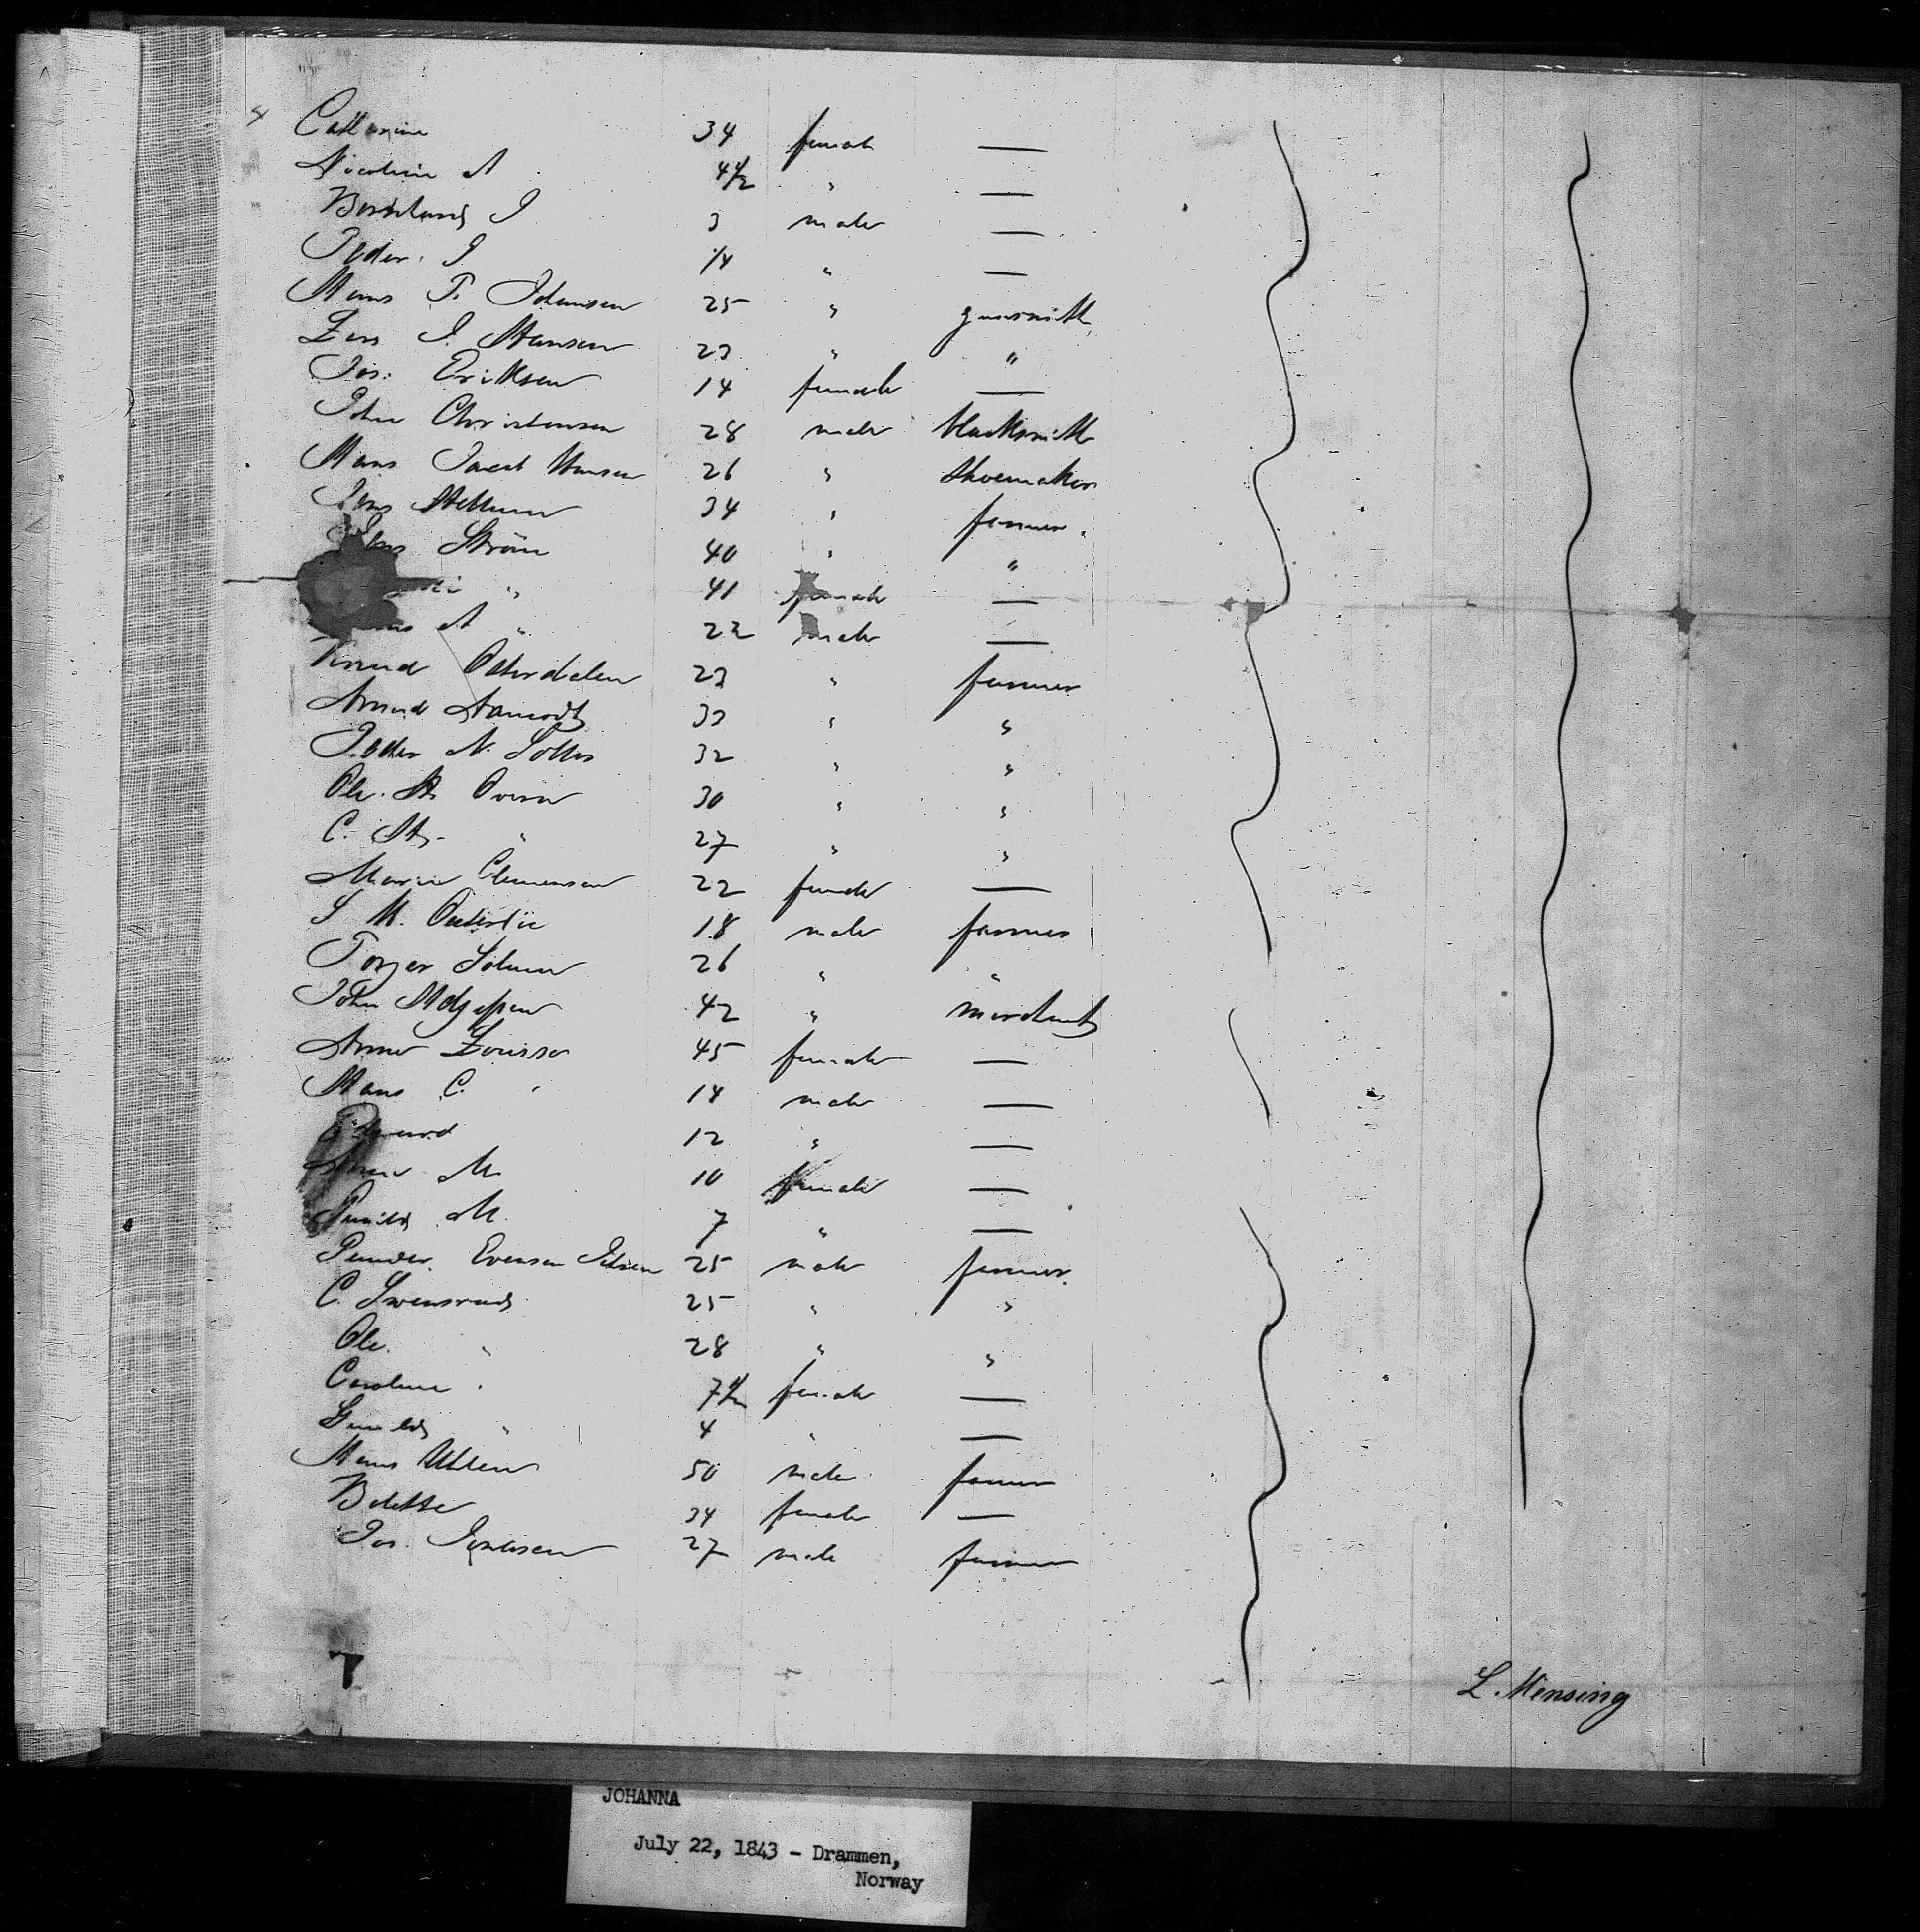 Catharine 34 female —
Nicoline A 4 1/2 " —
Bernhard J 3 male —
Peder J 1/4 " —
Hans P. Johansen 25 " gunsmith
Lars J. Hansen 23 " "
Jos. Eriksen 14 female —
John Christensen 28 male blacksmith
Hans Jacob Hansen 26 " Shoemaker
Jens 34 " farmer
Ström 40 " "
" 41 female —
A " 22 male —
Knud Osterdalen 23 " farmer
Amund Aamodt 33 " "
Peder N. 32 " "
Ole H. 30 " "
C. H. " 27 " "
Marie Clemensen 22 female —
S M. 18 male farmer
Torger 26 " "
John 42 " merchant
Anne Lovisse 45 female —
Hans C. " 14 male —
Edward 12 " —
M 10 female —
M. 7 " —
Evensen 25 male farmer
C. Swensrud 25 " "
Ole " 28 " "
Caroline " 7 1/2 female —
Gunild " 4 " —
Hans Uhlen 50 male farmer
Bolette 34 female —
Jos. 27 male farmer
L. Mensing
JOHANNA
July 22, 1843 - Drammen,
Norway